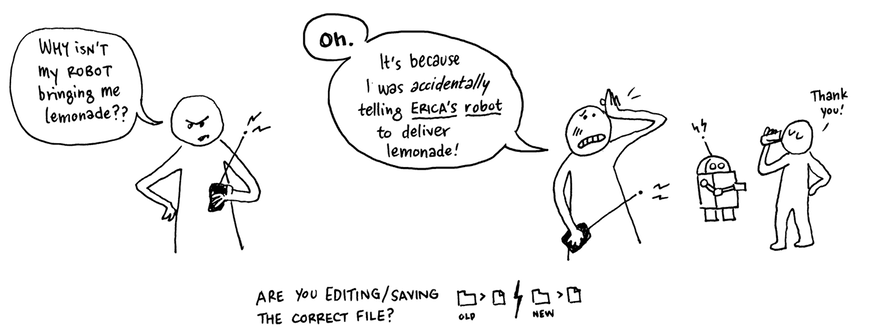 WHY ISN'T
MY ROBOT
bringing me
lemonade??
Oh.
It's because
I was accidentally
telling ERICA'S robot
to deliver
lemonade!
Thank
you!
ARE YOU EDITING/SAVING
THE CORRECT FILE?
> / >
OLD NEW